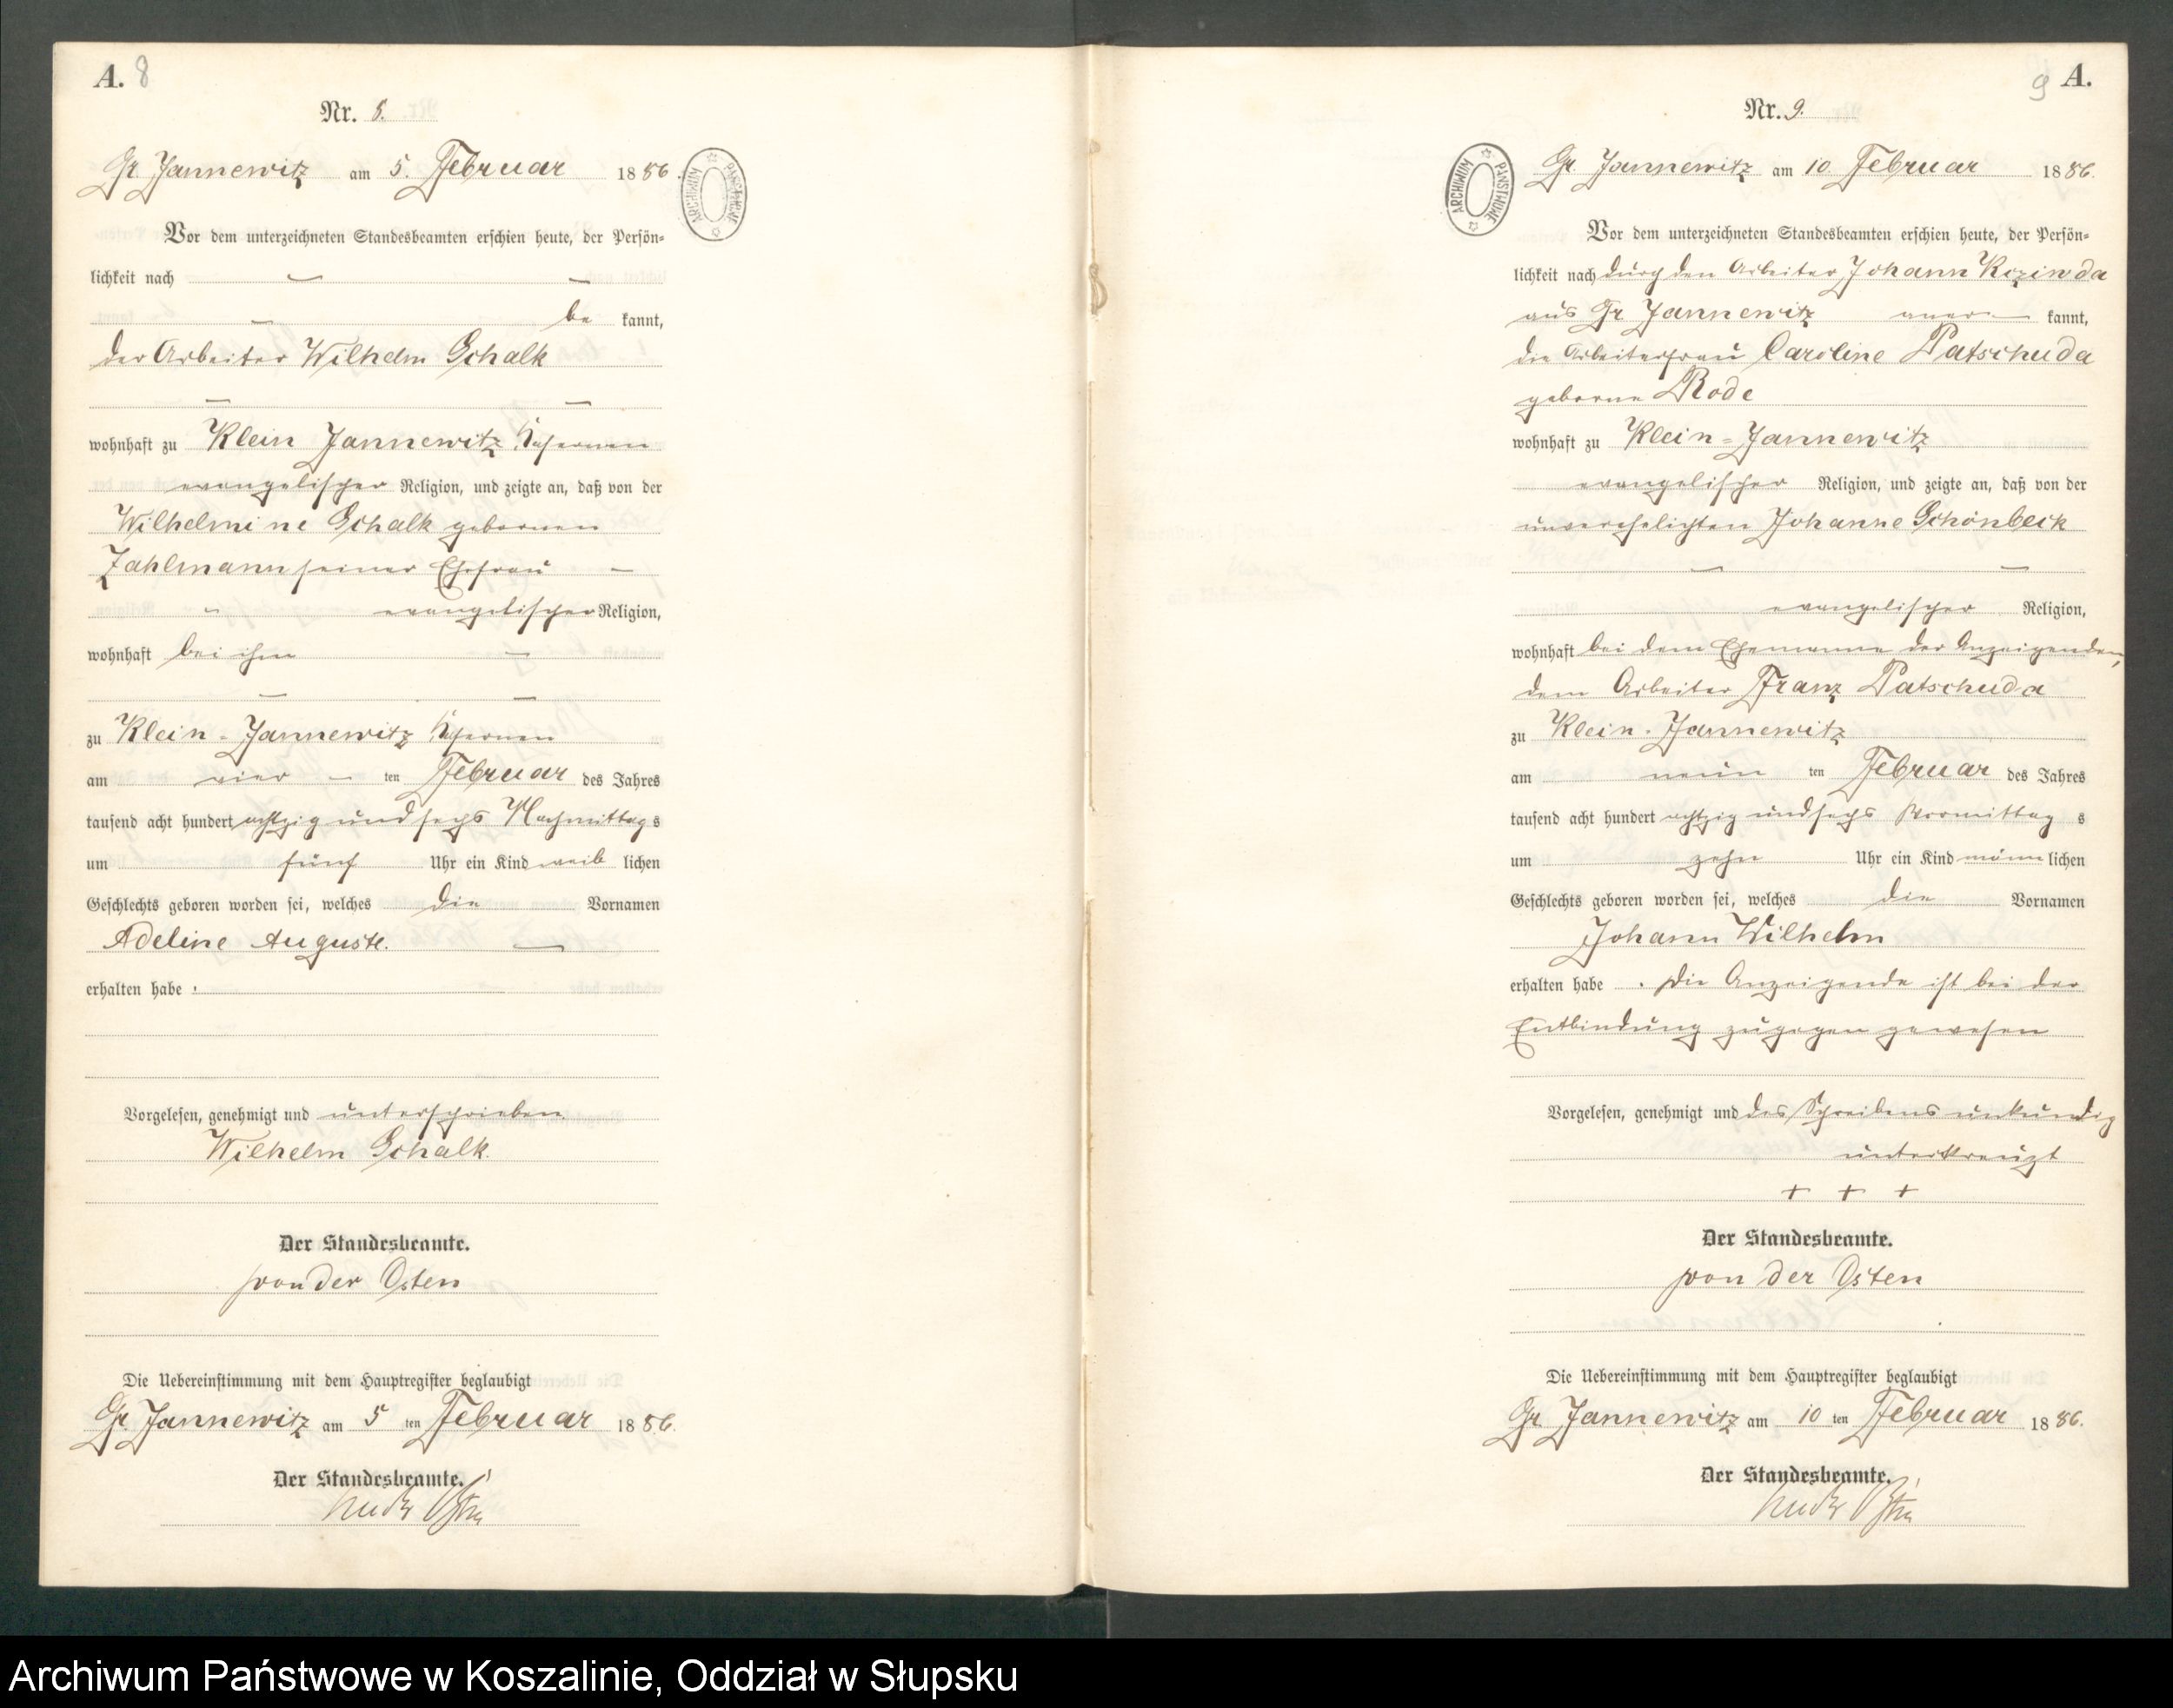 A. 8
Nr. 8.
Gr Jannewitz am 5. Februar 1886.
ARCHIWUM PAŃSTWOWE
Vor dem unterzeichneten Standesbeamten erschien heute, der Persön-
lichkeit nach
be kannt,
der Arbeiter Wilhelm Schalk
wohnhaft zu Klein Jannewitz
evangelischer Religion, und zeigte an, daß von der
Wilhelmine Schalk gebornen
Zahlmann seiner Ehefrau
evangelischer Religion,
wohnhaft bei ihm
zu Klein-Jannewitz
am vier ten Februar des Jahres
tausend acht hundert achtzig und sechs Nachmittags
um fünf Uhr ein Kind weiblichen
Geschlechts geboren worden sei, welches die Vornamen
Adeline Auguste.
erhalten habe.
Vorgelesen, genehmigt und unterschrieben
Wilhelm Schalk.
Der Standesbeamte.
von der Osten
Die Uebereinstimmung mit dem Hauptregister beglaubigt
Gr. Jannewitz am 5 ten Februar 1886.
Der Standesbeamte.
9 A.
Nr. 9.
Gr. Jannewitz am 10 Februar 1886.
ARCHIWUM PAŃSTWOWE
Vor dem unterzeichneten Standesbeamten erschien heute, der Persön-
lichkeit nach durch den Arbeiter Johann
aus Gr Jannewitz aner kannt,
die Arbeiterfrau Caroline Patschuda
geborne Rode
wohnhaft zu Klein-Jannewitz
evangelischer Religion, und zeigte an, daß von der
unverehelichten Johanne Schönbeck
evangelischer Religion,
wohnhaft bei dem Ehemanne der Anzeigenden,
dem Arbeiter Franz Patschuda
zu Klein-Jannewitz
am neun ten Februar des Jahres
tausend acht hundert achtzig und sechs Vormittag s
um zehn Uhr ein Kind männlichen
Geschlechts geboren worden sei, welches die Vornamen
Johann Wilhelm
erhalten habe. Die Anzeigende ist bei der
Entbindung zugegen gewesen
Vorgelesen, genehmigt und des Schreibens unkundig
unterkreuzt
+ + +
Der Standesbeamte.
von der Osten
Die Uebereinstimmung mit dem Hauptregister beglaubigt
Gr. Jannewitz am 10 ten Februar 1886.
Der Standesbeamte.
Archiwum Państwowe w Koszalinie, Oddział w Słupsku